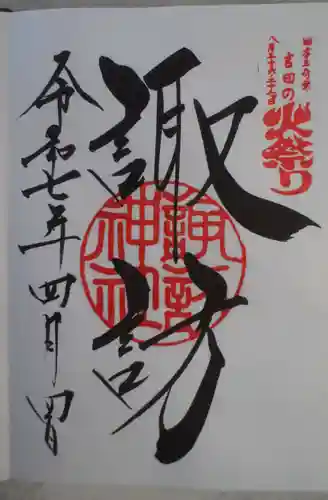 日本三奇祭
八月二十六・二十七日
吉田の
火祭り
諏訪
諏訪
神社
令和七年四月四日